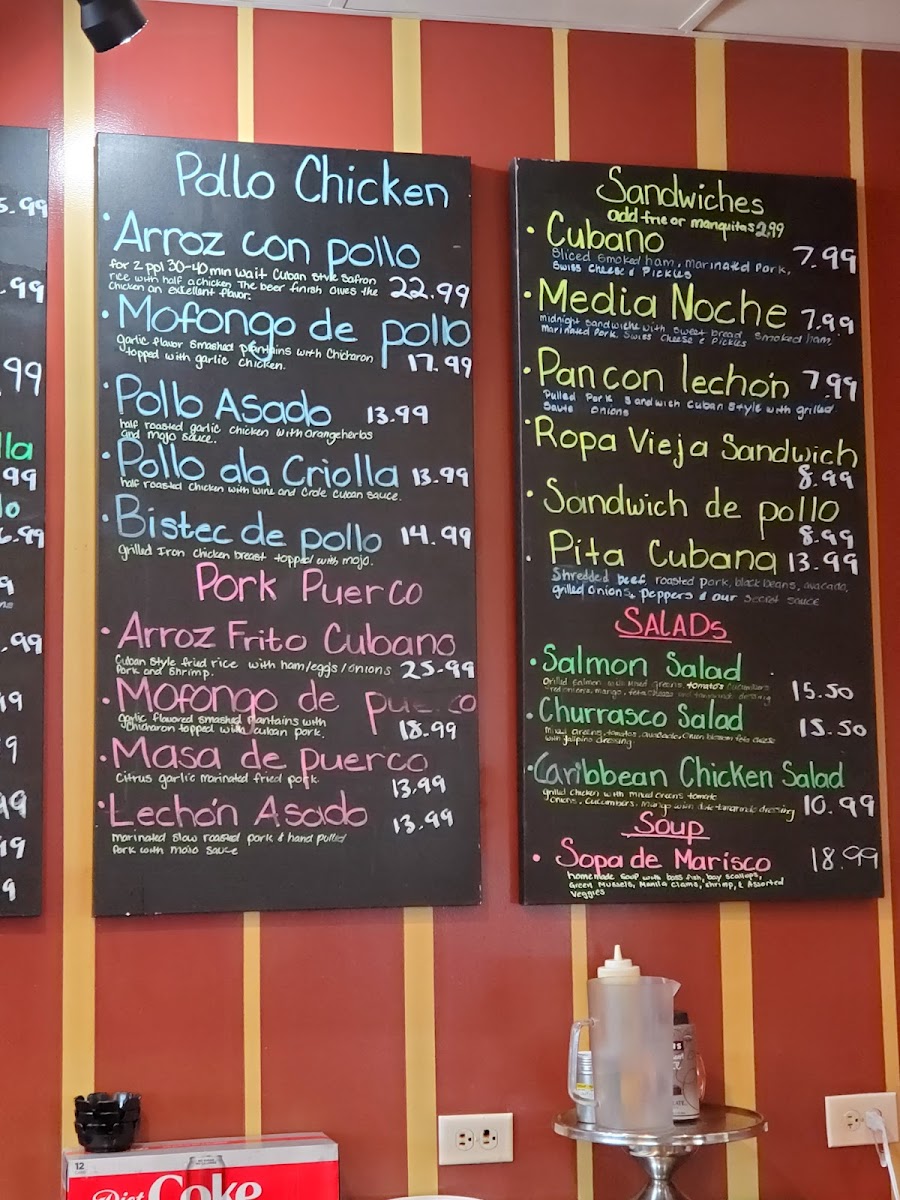 5.99
.99
99
lla
99
lo
6.99
9
.99
19
9
99
19
9
Pollo Chicken
Arroz con pollo
for 2 ppl 30-40 min wait Cuban style Safron
rice with half a chicken The beer finish gives the
Chicken an excellent flavor.
22.99
Mofongo de pollo
garlic flavor smashed plantains with Chicharon
topped with garlic chicken.
17.99
Pollo Asado 13.99
half roasted garlic chicken with orangeherbs
and mojo sauce.
Pollo ala Criolla 13.99
half roasted chicken with wine and Crole Cuban sauce.
Bistec de pollo 14.99
grilled Iron chicken breast topped with mojo.
Pork Puerco
Arroz Frito Cubano
Cuban style fried rice with ham/eggs/onions
Pork and shrimp.
25.99
Mofongo de puerco
garlic flavored smashed plantains with
Chicharon topped with cuban pork.
18.99
Masa de puerco
Citrus garlic marinated fried pork.
13.99
Lechón Asado 13.99
marinated slow roasted pork & hand pulled
Pork with mojo sauce
Sandwiches
add frie or manquitas 2.99
Cubano
Sliced smoked ham, marinated Pork,
Swiss Cheese & Pickles
7.99
Media Noche 7.99
midnight sandwiche with sweet bread smoked ham,
Marinated Pork. Swiss Cheese & Pickles
Pan con lechón 7.99
Pulled Pork Sandwich Cuban Style with grilled
Saute onions
Ropa Vieja Sandwich
8.99
Sandwich de pollo
8.99
Pita Cubana 13.99
Shredded beef, roasted pork, black beans, avacado,
grilled onions, peppers & our secret sauce
SALADs
Salmon Salad
Grilled Salmon with mixed greens, tomato's cucumbers
red onions, mango, feta cheese and tamarindo dressing
15.50
Churrasco Salad 15.50
Mixed greens, tomatos, avocado, feta cheese
with dressing
Caribbean Chicken Salad
grilled Chicken with mixed Greens tomato
Onions, Cucumbers, Mango with tamarindo dressing
10.99
Soup
Sopa de Marisco 18.99
homemade Soup with bass fish, bay scallops,
Green Mussels, Manila clams, shrimp, & Assorted
Veggies
12
Diet Coke